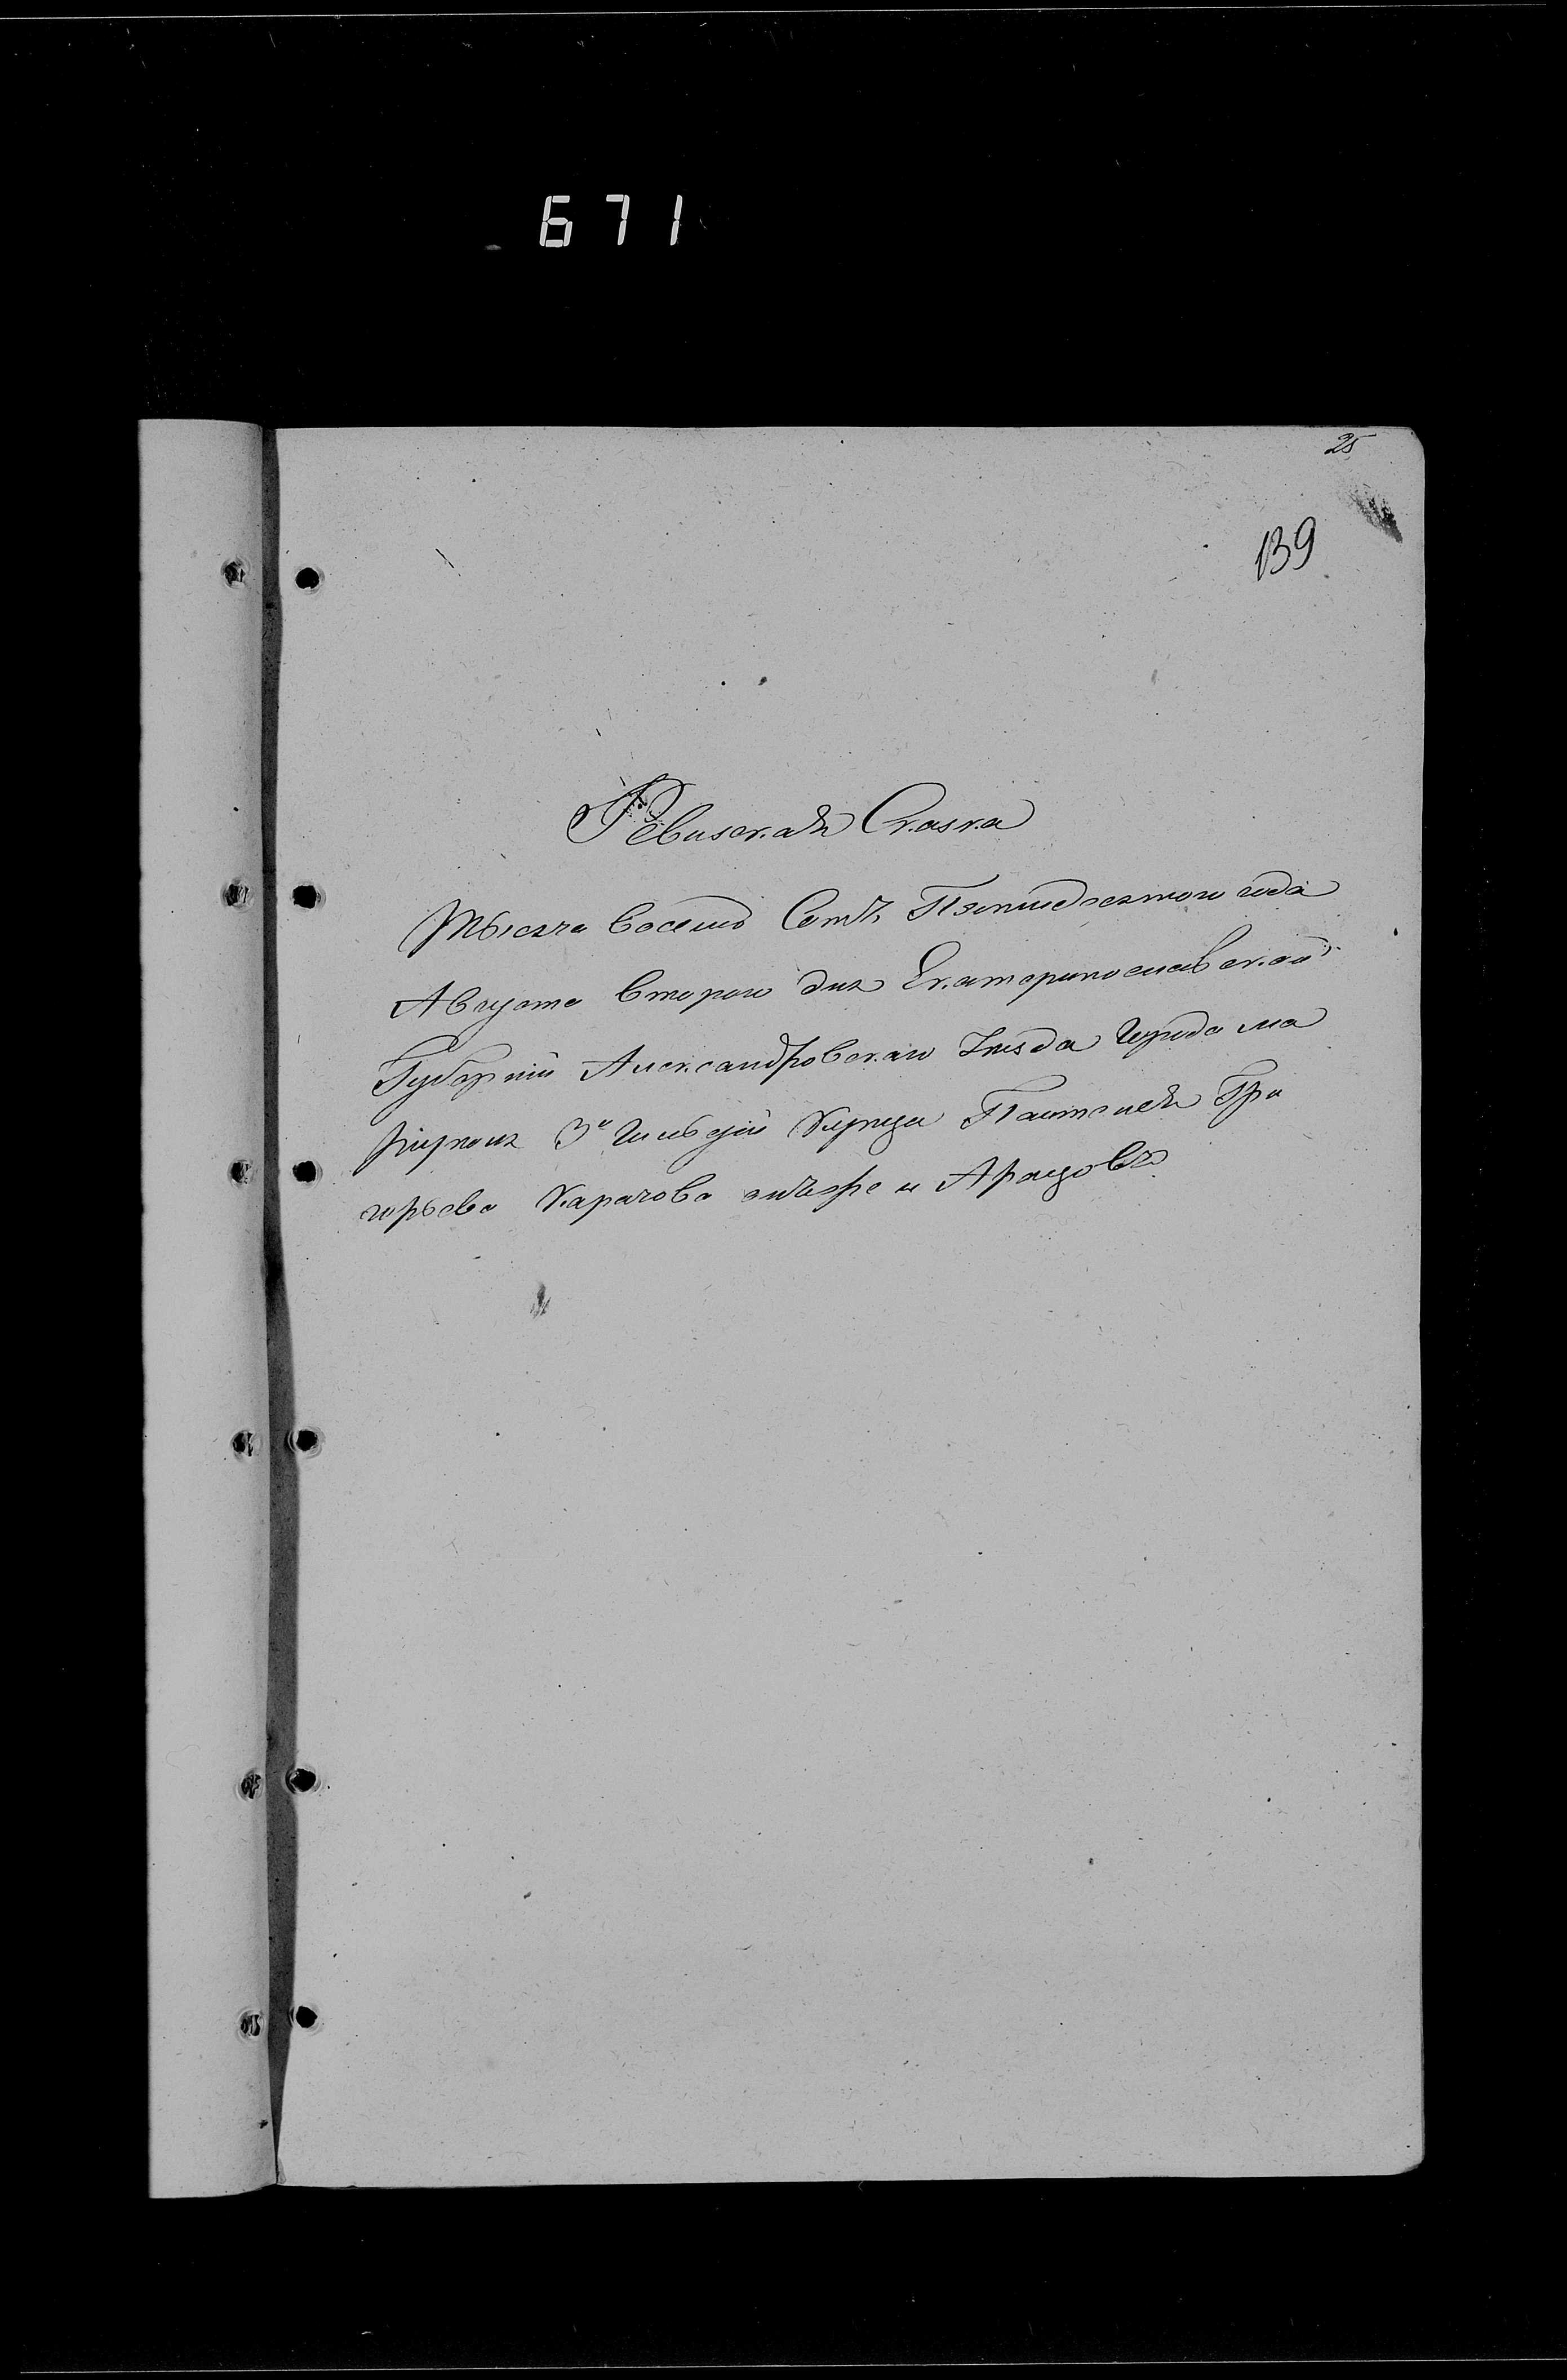 671
25
139
Ревизская Сказка
Тысяча восемь Сотъ Пятидесятого года
Августа второго дня Екатеринославской
Губернии Александровскаго Уезда города Ма
риуполя 3й Гильдии Купца Пантелея Гри
горьева Карачова и Арацовъ